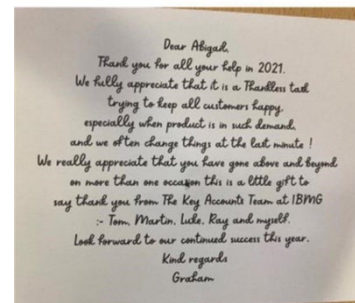 Dear Abigail,
Thank you for all your help in 2021.
We fully appreciate that it is a Thankless task
trying to keep all customers happy,
especially when product is in such demand,
and we often change things at the last minute !
We really appreciate that you have gone above and beyond
on more than one occasion this is a little gift to
say thank you from The Key Accounts Team at IBMG
:- Tom, Martin, Luke, Ray and myself.
Look forward to our continued success this year.
Kind regards
Graham